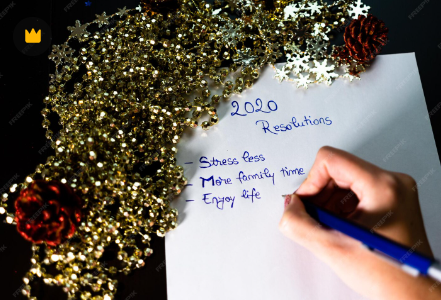 2020
Resolutions
- Stress less
- More family time
- Enjoy life